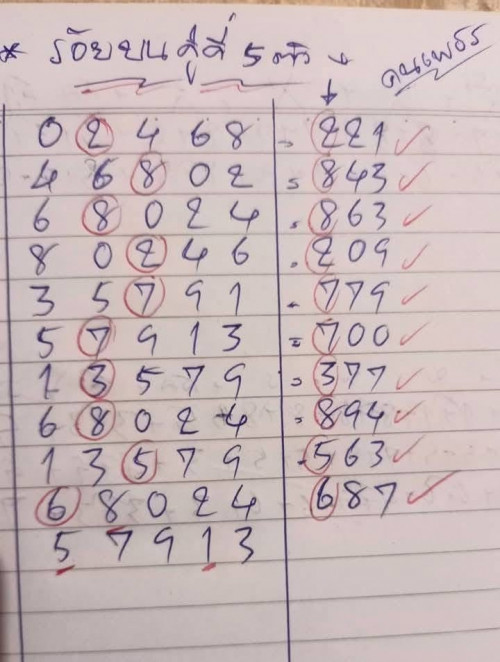 * ร้อยบน คู่คี่ 5 ตัว ↓ คนเพชร
↓
0 2 4 6 8 = 221 ✓
4 6 8 0 2 = 843 ✓
6 8 0 2 4 = 863 ✓
8 0 2 4 6 = 209 ✓
3 5 7 9 1 = 779 ✓
5 7 9 1 3 = 700 ✓
1 3 5 7 9 = 377 ✓
6 8 0 2 4 = 894 ✓
1 3 5 7 9 = 563 ✓
6 8 0 2 4 687 ✓
5 7 9 1 3